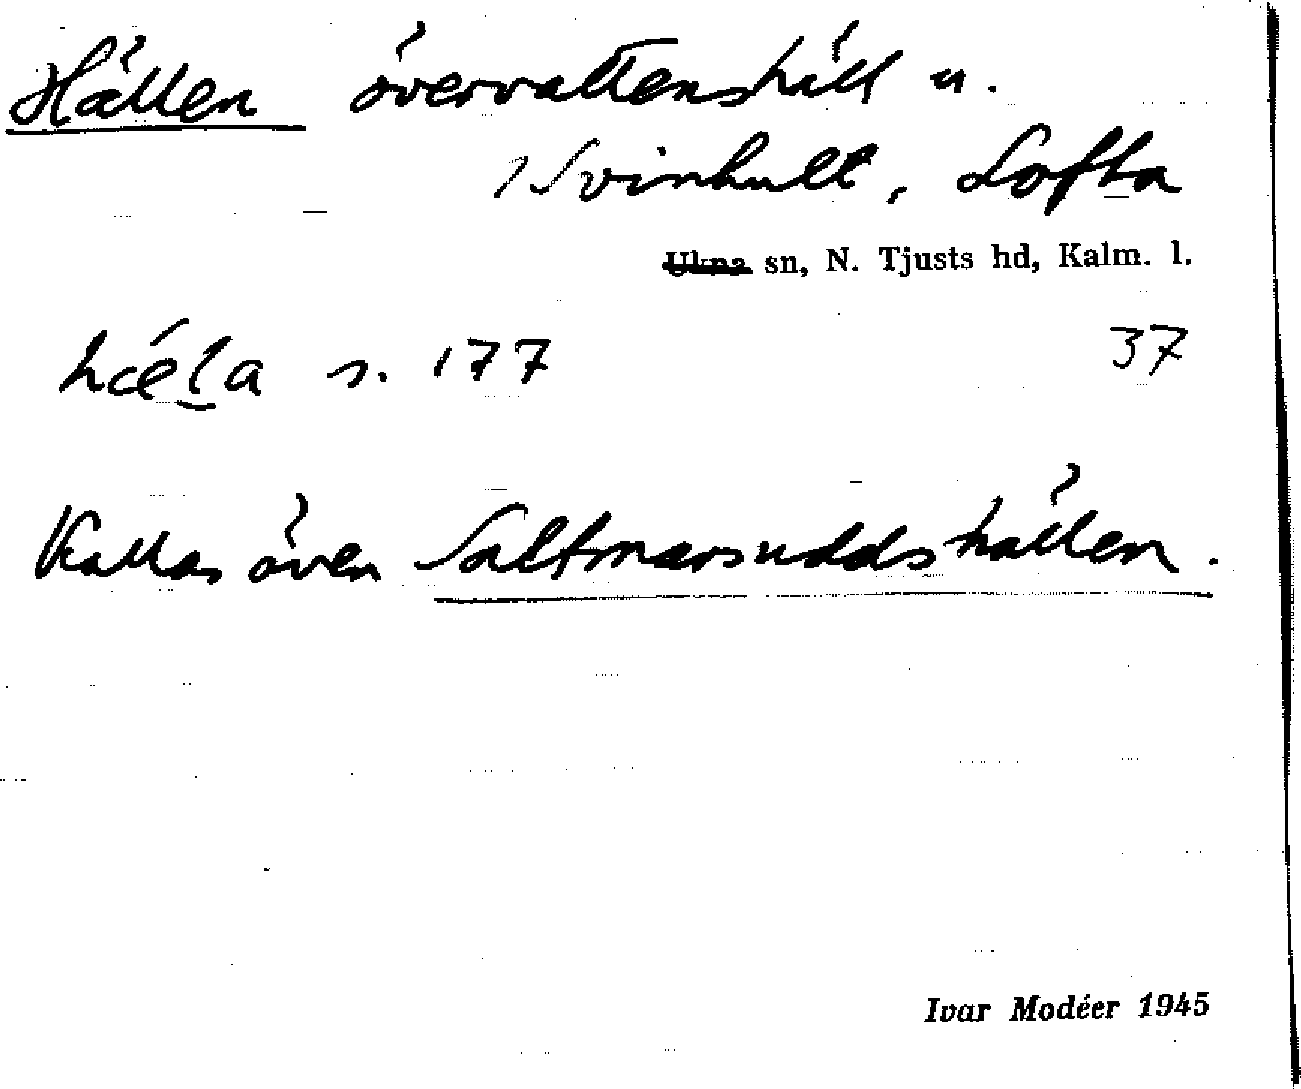 Hällen övervattenshäll u.
Svinhult, Lofta
Ukna sn, N. Tjusts hd, Kalm. l.
hǽḷa s. 177 37
Kallas även Saltmarsuddshällen.
Ivar Modéer 1945